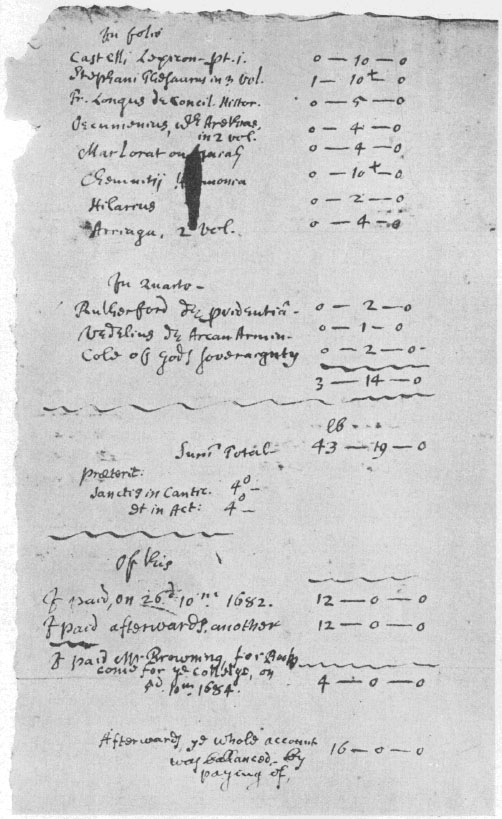 In folio
Castelli Lexicon pt. i. 0 — 10 — 0
Stephani Thesaurus in 3 vol. 1 — 10+ — 0
Fr. Longus de Concil. Histor. 0 — 5 — 0
Oecumenius, wth Arethas, 0 — 4 — 0
in 2 vol.
Marlorat on 0 — 4 — 0
Chemnitij Harmonica 0 — 10+ — 0
Hilarius 0 — 2 — 0
Arriaga, 2 vol. 0 — 4 — 0
In Quarto —
Rutherford de providentiâ — 0 — 2 — 0
Vedelius de Arcan Armin — 0 — 1 — 0
Cole of Gods soveraignty 0 — 2 — 0
3 — 14 — 0
lb
Sum Total — 43 — 19 — 0
Præterit:
Sanctis in Cantic. 4o —
Et in Act: 4o —
Of this
I paid, on 26d 10m 1682. 12 — 0 — 0
I paid afterwards, another 12 — 0 — 0
I paid Mr Browning, for
come for ye Colledge, on
10m 1684. 4 — 0 — 0
Afterwards ye whole account 16 — 0 — 0
was ballanced, by
paying of,